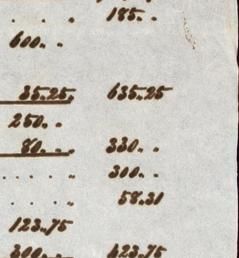 . . . 185. .
600. .
35.25. 635.25
250. .
80. . . 330. .
. . . . . 300. .
. . . . 58.31
123.75
300. . . 423.75